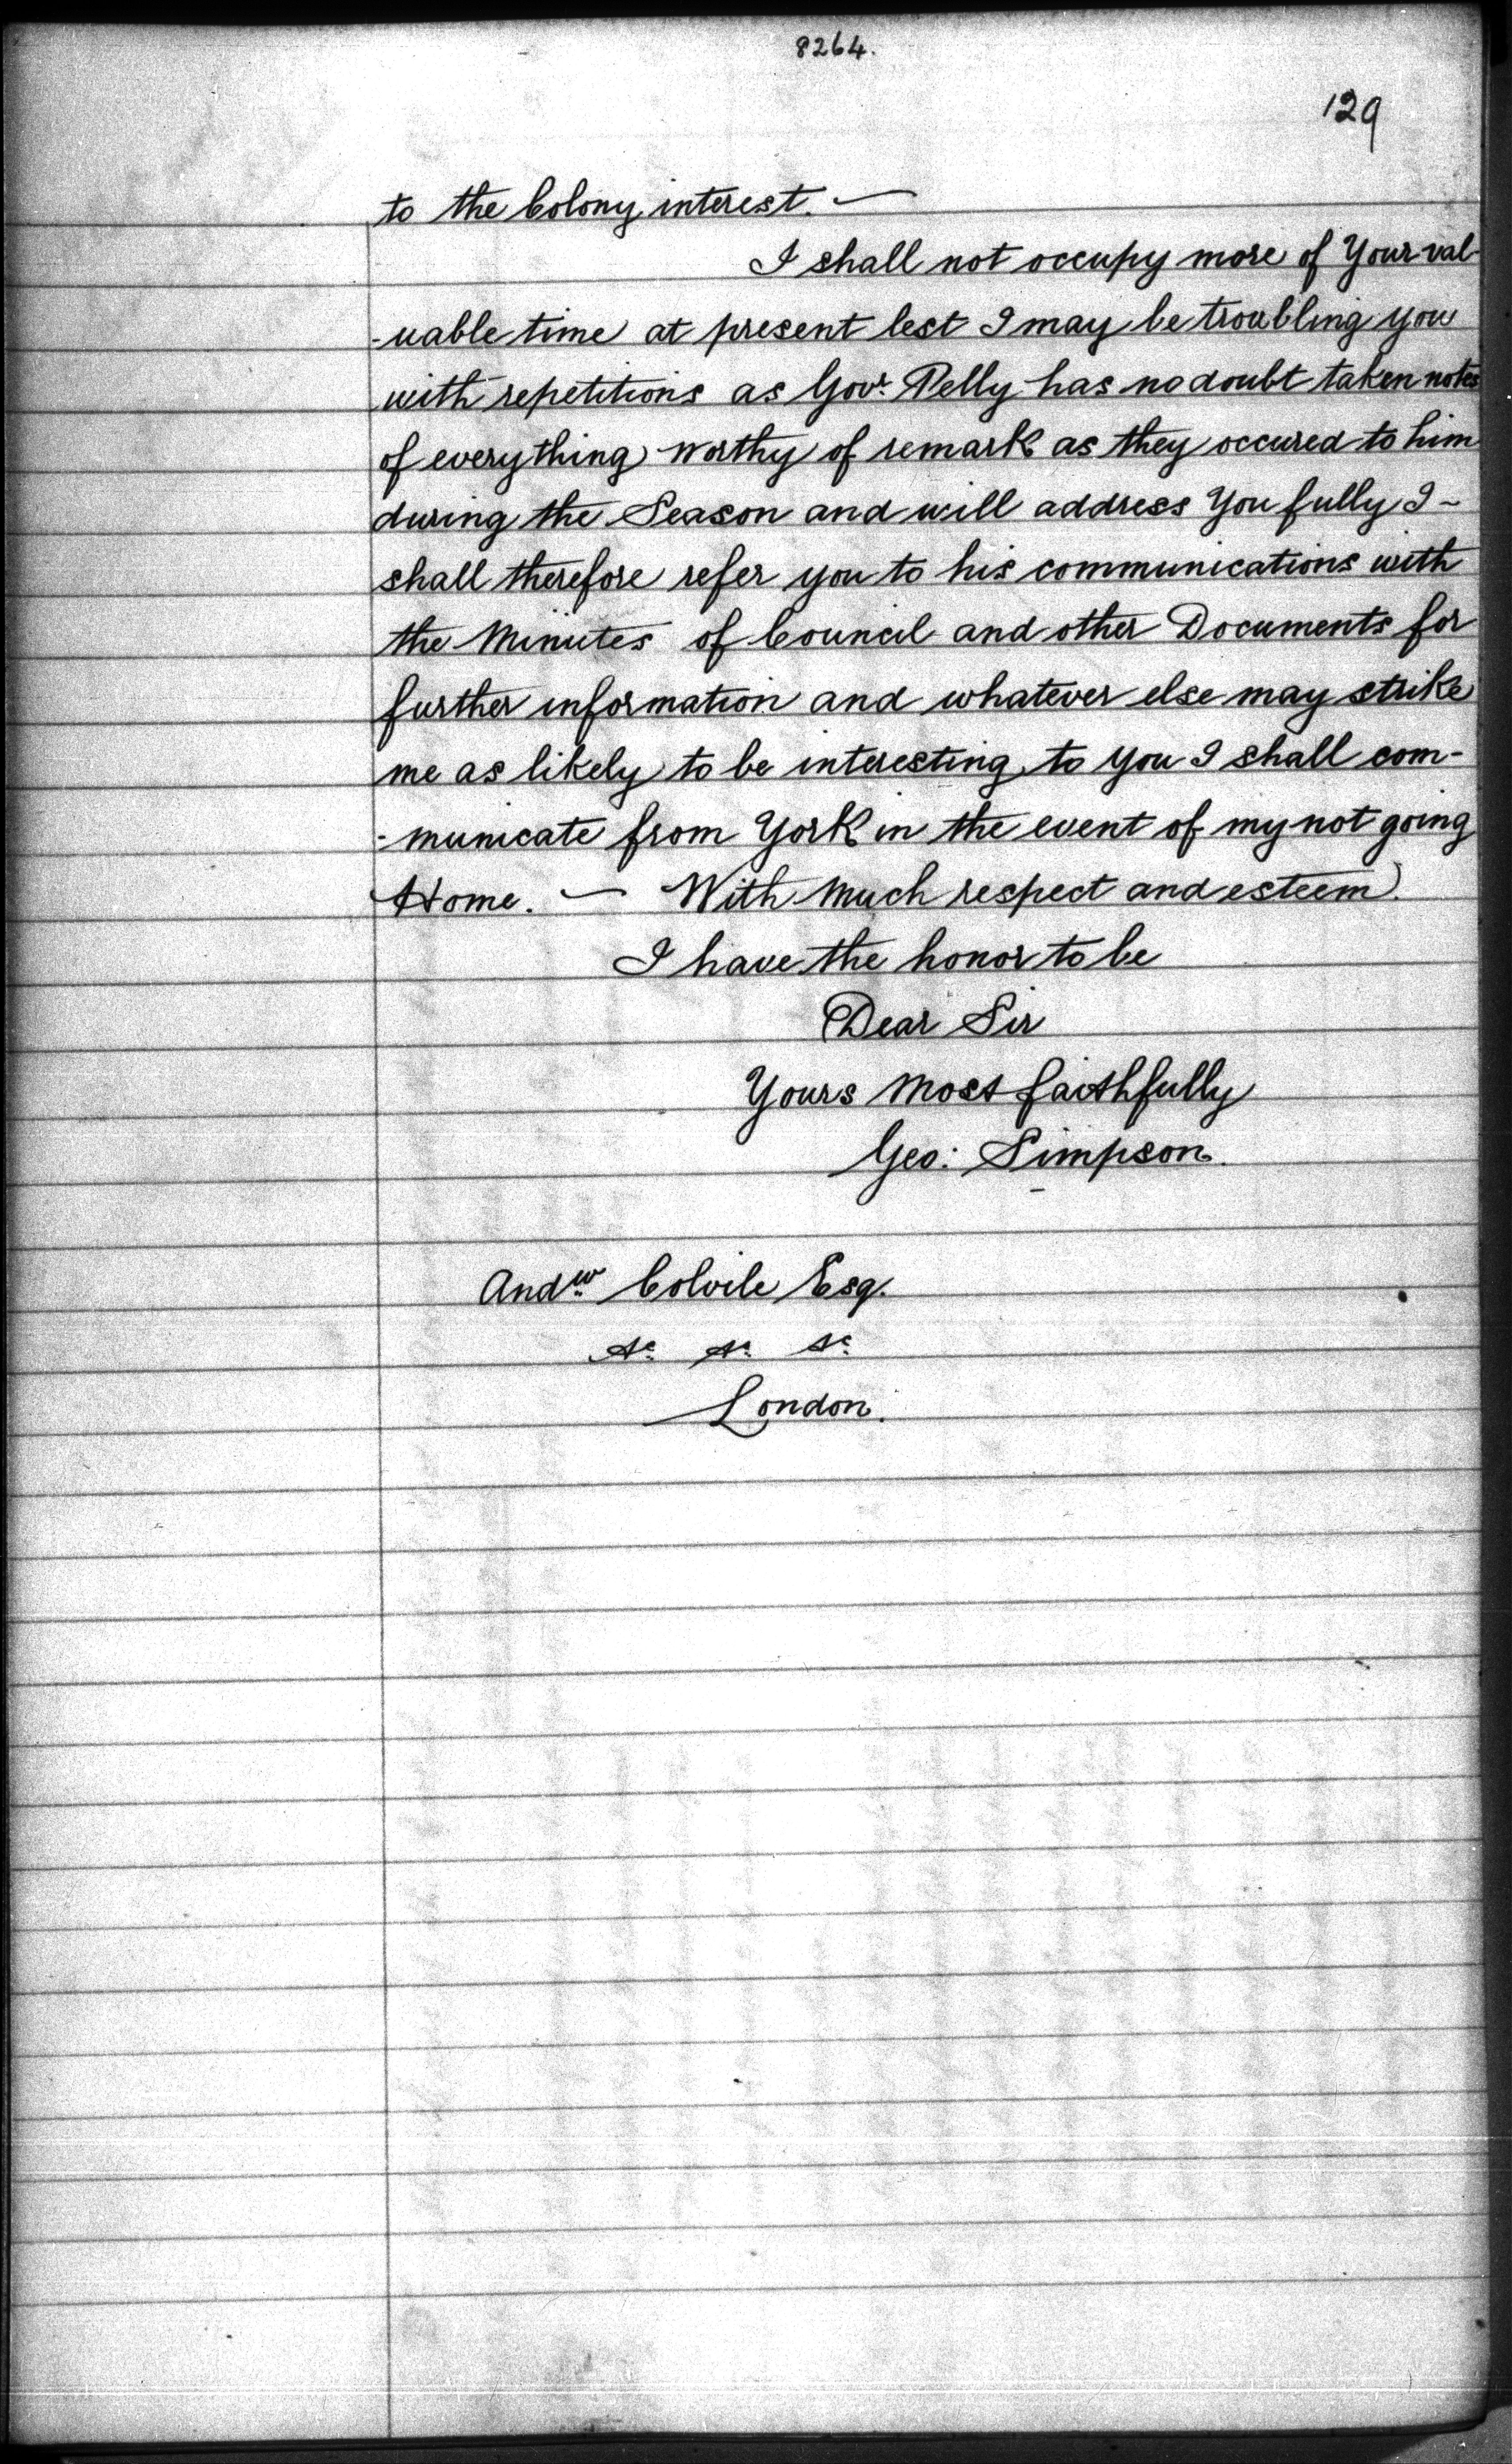 8264.
129
to the Colony interest. —
I shall not occupy more of Your val-
-uable time at present lest I may be troubling you
with repetitions as Govr. Pelly has no doubt taken notes
of everything worthy of remark as they occured to him
during the Season and will address You fully I -
shall therefore refer you to his communications with
the Minutes of Council and other Documents for
further information and whatever else may strike
me as likely to be interesting to you I shall com-
-municate from York in the event of my not going
Home. — With much respect and esteem.
I have the honor to be
Dear Sir
Yours most faithfully
Geo: Simpson.
Andw. Colvile Esq.
&c. &c. &c.
London.